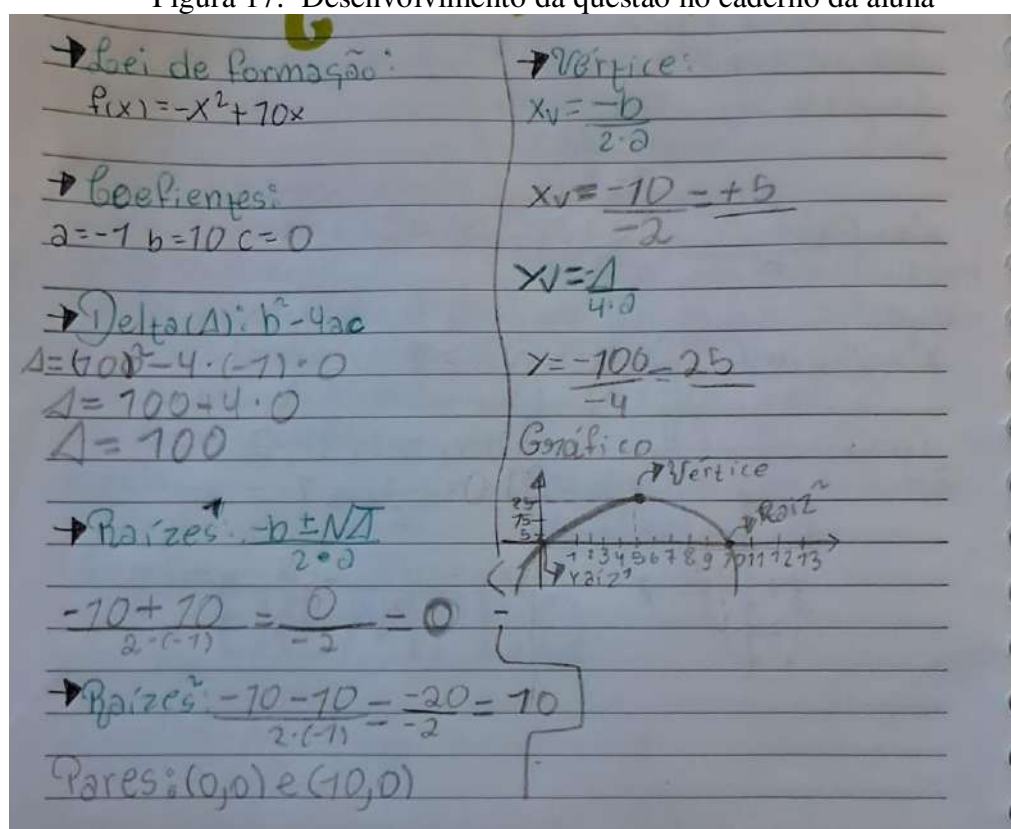 Figura 17: Desenvolvimento da questão no caderno da aluna
→ Lei de formação:
f(x) = -x² + 10x
→ Coefientes:
a = -1 b = 10 c = 0
→ Delta (Δ): b² - 4ac
Δ = (10)² - 4 · (-1) · 0
Δ = 100 + 4 · 0
Δ = 100
→ Raízes¹: -b ± √Δ / 2 · a
-10 + 10 / 2 · (-1) = 0 / -2 = 0
→ Raízes²: -10 - 10 / 2 · (-1) = -20 / -2 = 10
Pares: (0,0) e (10,0)
→ Vértice:
Xv = -b / 2 · a
Xv = -10 / -2 = +5
Yv = -Δ / 4 · a
Y = -100 / -4 = 25
Gráfico
Vértice
Raiz²
25
15
5
1 2 3 4 5 6 7 8 9 10 11 12 13
raiz¹